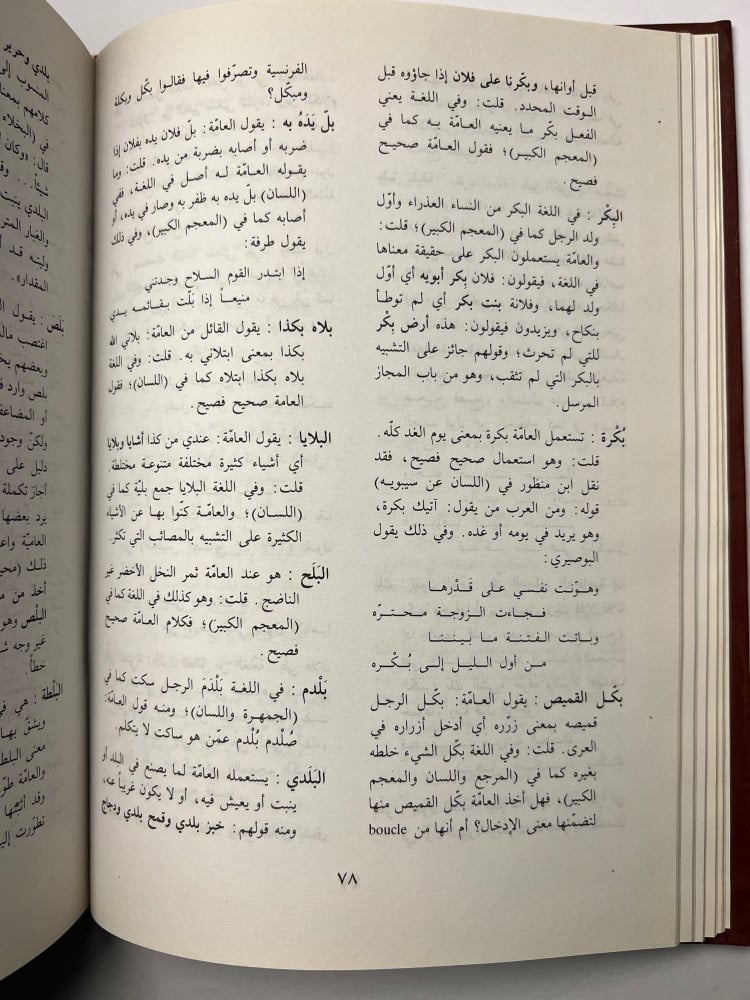 قبل أوانها، وبكّرنا على فلان إذا جاؤوه قبل
الوقت المحدد. قلت: وفي اللغة يعني
الفعل بكّر ما يعنيه العامّة به كما في
(المعجم الكبير)؛ فقول العامّة صحيح
فصيح.
البِكْر : في اللغة البكر من النساء العذراء وأوّل
ولد الرجل كما في (المعجم الكبير)؛ قلت:
والعامّة يستعملون البكر على حقيقة معناها
في اللغة، فيقولون: فلان بِكر أبويه أي أوّل
ولد لهما، وفلانة بنت بكر أي لم توطأ
بنكاح، ويزيدون فيقولون: هذه أرض بِكْر
للتي لم تحرث؛ وقولهم جائز على التشبيه
بالبكر التي لم تثقب، وهو من باب المجاز
المرسل.
بُكْرة : تستعمل العامّة بكرة بمعنى يوم الغد كلّه.
قلت: وهو استعمال صحيح فصيح، فقد
نقل ابن منظور في (اللسان عن سيبويه)
قوله: ومن العرب من يقول: آتيك بكرة،
وهو يريد في يومه أو غده. وفي ذلك يقول
البوصيري:
وهـوّنت نفسي على قَـدْرهـا
فـجـاءت الـزوجـة محـتـرّه
وبـاتت الفتـنة مـا بيـننـا
مـن أول الليـل إلـى بُكْـره
بكّـل القميص : يقول العامّة: بكّـل الرجـل
قميصه بمعنى زرّره أي أدخل أزراره في
العرى. قلت: وفي اللغة بكّل الشيء خلطه
بغيره كما في (المرجع واللسان والمعجم
الكبير)، فهل أخذ العامّة بكّل القميص منها
لتضمّنها معنى الإدخال؟ أم أنها من boucle
الفرنسية وتصرّفوا فيها فقالـوا بكّل وبكلة
ومبكّل؟
بلّ يَدَهُ به : يقول العامّة: بلّ فلان يده بفلان إذا
ضربه أو أصابه بضربة من يده. قلت: وما
يقوله العامّة لـه أصل في اللغة، ففي
(اللسان) بلّ يده به ظفر به وصار في يده، أو
أصابه كما في (المعجم الكبير)، وفي ذلك
يقول طرفة:
إذا ابتـدر القوم السلاح وجدتني
منيعـاً إذا بَلّت بـقـائمـه يـدي
بلاه بكذا : يقول القائل من العامّة: بلاني الله
بكذا بمعنى ابتلاني به. قلت: وفي اللغة
بلاه بكذا ابتلاه كما في (اللسان)؛ فقول
العامة صحيح فصيح.
البلايا : يقول العامّة: عندي من كذا أشايا وبلايا
أي أشياء كثيرة مختلفة متنوعة مختلطة.
قلت: وفي اللغة البلايا جمع بليّة كما في
(اللسان)؛ والعامّة كنّوا بهـا عن الأشياء
الكثيرة على التشبيه بالمصائب التي تكثر.
البَلَح : هو عند العامّة ثمر النخل الأخضر غير
الناضج. قلت: وهو كذلك في اللغة كما في
(المعجم الكبير)؛ فكلام العامّة صحيح
فصيح.
بَلْدم : في اللغة بَلْدَمَ الرجـل سكت كما في
(الجمهـرة واللسان)؛ ومنه قول العامّة:
صُلْدم بُلْدم عمّن هو ساكت لا يتكلم.
البَلَدي : يستعمله العامّة لما يصنع في البلد أو
ينبت أو يعيش فيه، أو لا يكون غريباً عنه،
ومنه قولهم: خبز بلدي وقمح بلدي ودجاج
٧٨
بلدي وحرير
المنسوب إلى
كلامهم بمعنا
في (البخلاء
قال: «وكان أ
البلدي يثبت
والغبار المتر
وليته قـد أ
المقدار».
بَلَص : يقول ال
اغتصب مالـ
وبعضهم يخ
بلص وارد ف
أو المضاعف
ولكنّ وجود
دليل على
أجاز تكملة
يرد بعضها
العاميّة واعـ
ذلـك (محيـ
أخذ من مـ
البلْص وهو
غير وجه شـ
خطأً.
البَلْطة : هي في
ويشق بهـا
معنى البلطـ
والعامّة طوّ
وقد أثبتها
تطوّرت إلى